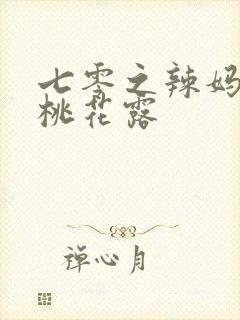 七零之辣妈
桃花露
禅心月